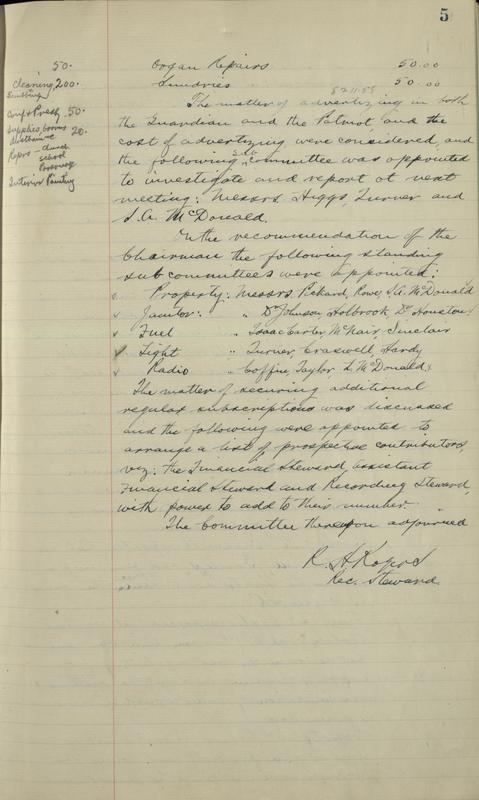 5
50.
Organ Repairs 50.00
cleaning 200.
Sundries 50.00
8211.88
The matter of advertizing in both
the Guardian and the Patriot, and the
cost of advertizing were considered, and
the following sub committee was appointed
to investigate and report at next
meeting: Messrs. Higgs, Turner and
S.A. McDonald.
Conf & Presby. 50.
Supplies, brooms 20.
Repns - church
school
Parsonage
Interior Painting
On the recommendation of the
Chairman the following standing
sub committees were appointed:
✓ Property: Messrs. Pickard, Rowe, S.A. McDonald
✓ Janitor: " Dr Johnson, Holbrook, Dr. Houston
✓ Fuel " Isaac Carter, McNair, Sinclair
✓ Light " Turner, Craswell, Hardy
✓ Radio " Coffin, Taylor, L. McDonald,
The matter of securing additional
regular subscriptions was discussed
and the following were appointed to
arrange a list of prospective contributors,
viz: the Financial Steward, assistant
Financial Steward and Recording Steward,
with power to add to their number.
The Committee thereupon adjourned
R. H. Rogers
Rec. Steward